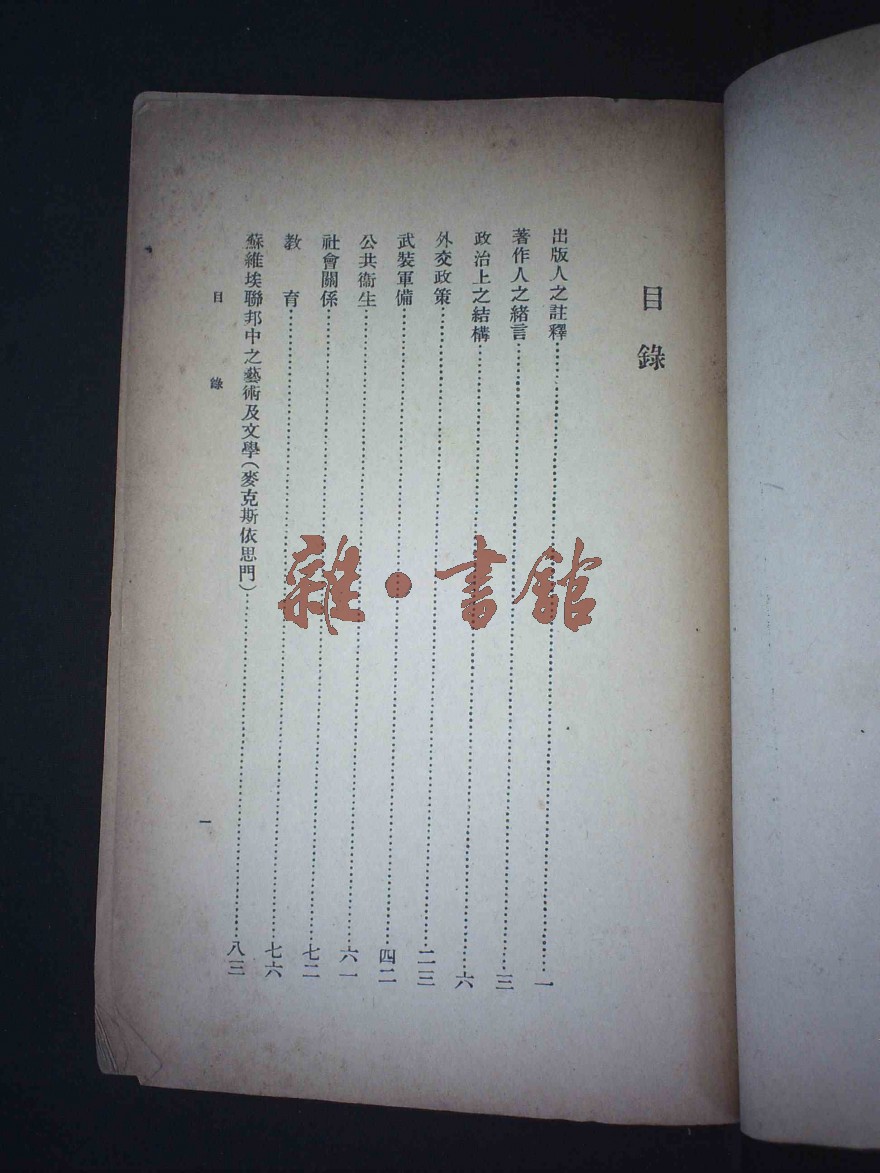 目錄
出版人之註釋……一
著作人之緒言……三
政治上之結構……六
外交政策……二三
武裝軍備……四二
公共衞生……六一
社會關係……七二
教育……七六
蘇維埃聯邦中之藝術及文學(麥克斯依思門)……八三
目錄
一
雜·書館